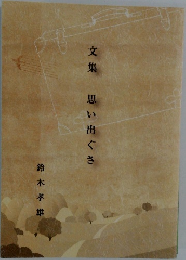 文集　思い出ぐさ
鈴木孝雄